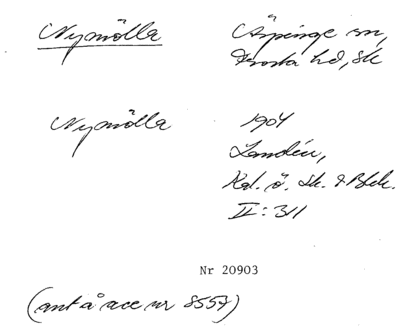 Nymölla Äspinge sn,
Frosta hd, Sk
Nymölla 1904
Landén,
Kat. ö. Sk. & Blek.
II: 311
Nr 20903
(ant å acc nr 8557)